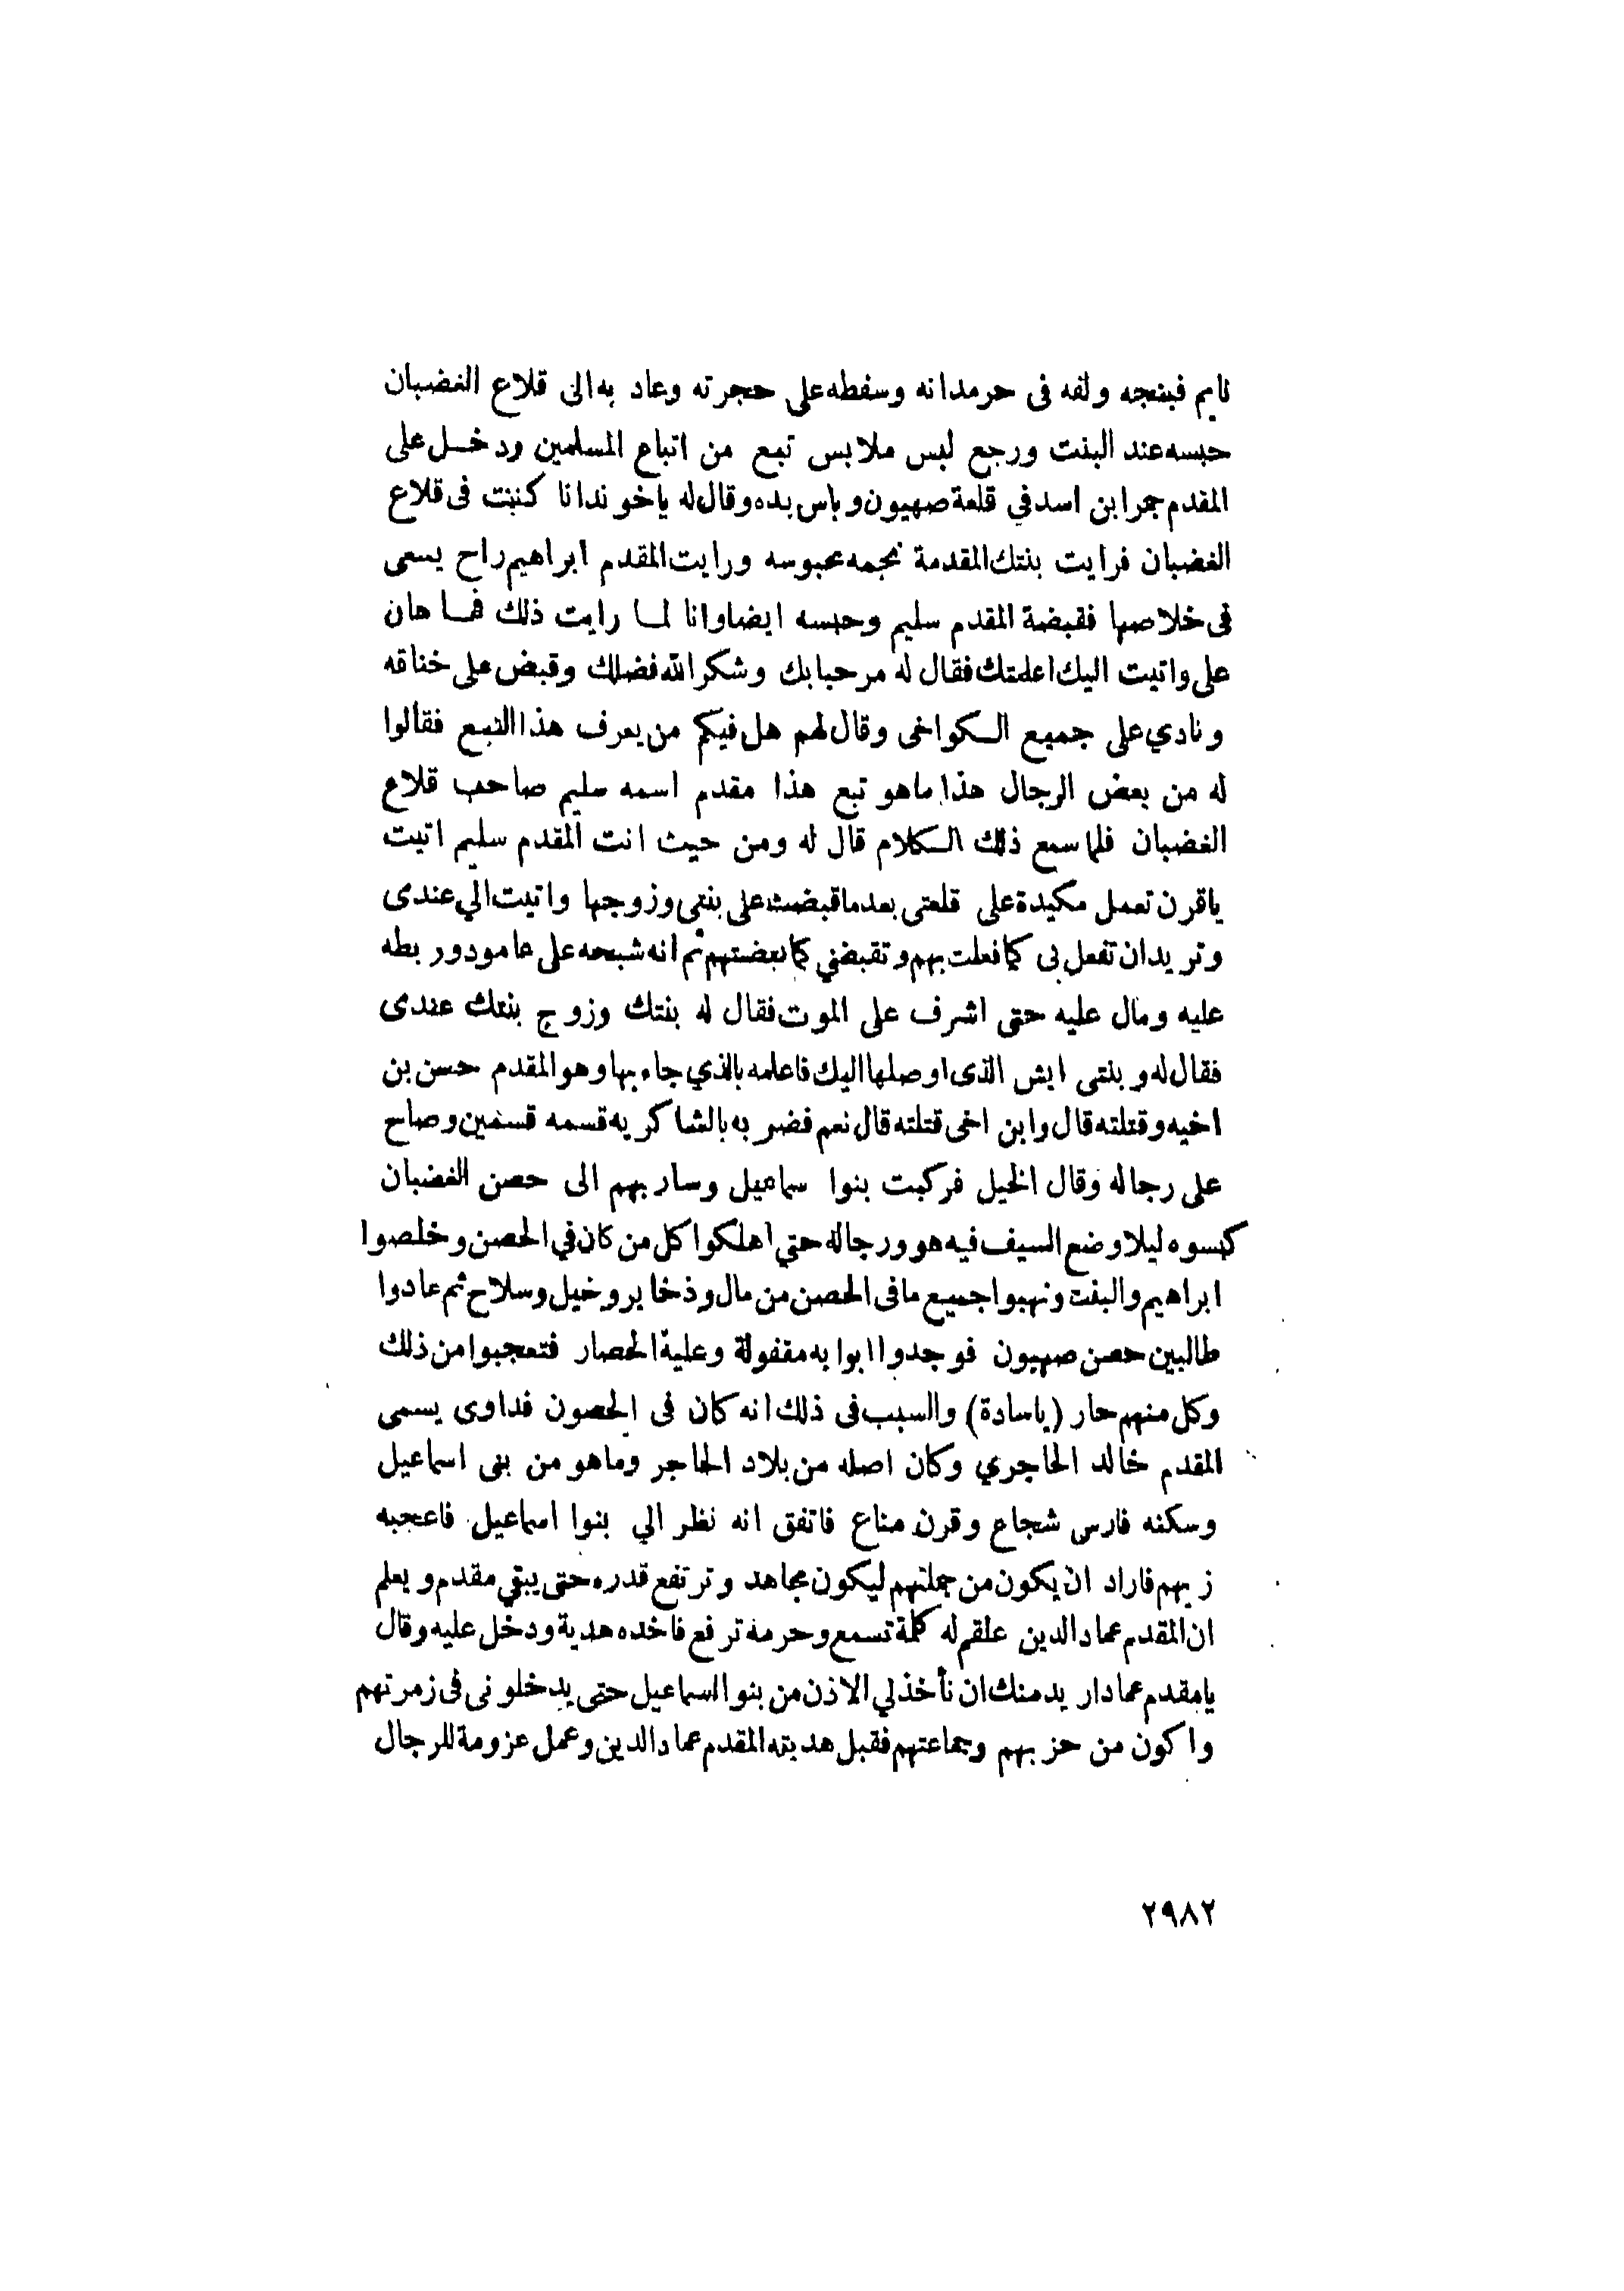 نايم فبنجه ولفه فى حرمدانه وسفطه على حجرته وعاد به الى قلاع الغضبان
حبسه عند البنت ورجع لبس ملابس تبع من اتباع المسلمين ودخل على
المقدم جمر ابن اسد في قلعة صهيون وباس يده وقال له ياخوند انا كنت فى قلاع
الغضبان فرايت بنتك المقدمة نجمه محبوسه ورايت المقدم ابراهيم راح يسعى
فى خلاصها فقبضة المقدم سليم وحبسه ايضا وانا لما رايت ذلك فما هان
على واتيت اليك اعلمتك فقال له مرحبا بك وشكر الله فضلك وقبض على خناقه
ونادي على جميع الكواخى وقال لهم هل فيكم من يعرف هذا التبع فقالوا
له من بعض الرجال هذا ماهو تبع هذا مقدم اسمه سليم صاحب قلاع
الغضبان فلما سمع ذلك الكلام قال له ومن حيث انت المقدم سليم اتيت
ياقرن تعمل مكيدة على قلعتى بعد ماقبضت على بنتى وزوجها واتيت الي عندى
وتريد ان تفعل بى كما فعلت بهم وتقبضني كما قبضتهم ثم انه شبحه على عامود وربطه
عليه ومال عليه حتى اشرف على الموت فقال له بنتك وزوج بنتك عندى
فقال له وبنتى ايش الذى اوصلها اليك فاعلمه بالذي جاء بها وهو المقدم حسن بن
اخيه وقتلته قال وابن اخى قتلته قال نعم فضربه بالشاكريه قسمه قسمين وصاح
على رجاله وقال الخيل فركبت بنوا سماعيل وسار بهم الى حصن الغضبان
كبسوه ليلا وضع السيف فيه هو ورجاله حتي اهلكوا كل من كان في الحصن وخلصوا
ابراهيم والبنت ونهبوا جميع مافى الحصن من مال وذخاير وخيل وسلاح ثم عادوا
طالبين حصن صهيون فوجدوا ابوابه مقفولة وعلية الحصار فتعجبوا من ذلك
وكل منهم حار (ياسادة) والسبب فى ذلك انه كان فى الحصون فداوى يسمى
المقدم خالد الحاجري وكان اصله من بلاد الحاجر وماهو من بنى اسماعيل
وسكنه فارس شجاع وقرن مناع فاتفق انه نظر الي بنوا اسماعيل فاعجبه
زيهم فاراد ان يكون من جملتهم ليكون مجاهد وترتفع قدره حتى يبقي مقدم ويعلم
ان المقدم عماد الدين علقم له كلمة تسمع وحرمة ترفع فاخده هدية ودخل عليه وقال
يامقدم عماد اريد منك ان تأخذ لي الاذن من بنوا اسماعيل حتى يدخلونى فى زمرتهم
واكون من حزبهم وجماعتهم فقبل هديته المقدم عماد الدين وعمل عزومة للرجال
٢٩٨٢